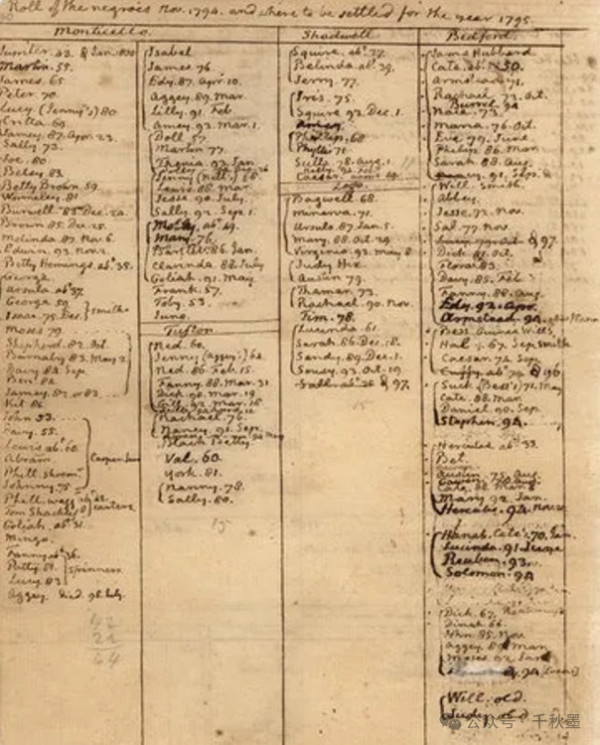 Roll of the negroes Nov. 1794. and where to be settled for the year 1795.
Monticello.
Jupiter. 43. & Jan. 1800
Martin. 55.
James. 65
Peter. 70.
Lucy (Jenny's) 80
Critta 69.
Jamey. 87. Apr. 23.
Sally 73.
Joe. 80
Betsy. 83.
Betty Brown. 59.
Wormeley. 81
Burwell. 83. Dec. 24.
Brown. 85. Dec. 25.
Melinda. 87. Nov. 6.
Edwin. 93. Nov. 2
Betty Hemings. abt. 35.
George
Ursula. abt. 37.
George. 59
Isaac. 75. Dec. smiths
Moses. 79
Shepherd. 82. Oct.
Barnaby. 83. May 2
Davy. 84. Sep.
Ben. 84
Jamey. 82. or 83.
Kit. 86
John 53.
Davy. 55.
Lewis abt. 60
Abram
Phill. shoem.
Johnny. 75
Phill. wagg.
Tom Shackleford carters
Goliah. abt. 31.
Mingo.
Fanny abt. 36.
Patty. 81.
Lucy. 83 spinners
Aggey. died 98. July.
42
22
64
Isabel
James 76
Edy. 87. Apr. 10.
Aggey. 89. Mar.
Lilly. 91. Feb
Amey. 93. Mar. 1.
Doll. 57
Martin 77.
Thenia. 93. Jan
Jenny (Ned's) 68.
Lewis. 88. Mar.
Jesse. 90. July.
Sally. 92. Sep. 1.
Molly. abt. 49.
Mary. 76.
Bartlet. 86. Jan.
Clarinda. 88. July
Goliah. 91. May
Frank. 57.
Toby. 53.
Juno.
Tufton
Ned. 60.
Jenny (Aggy's) 64.
Ned. 86. Feb. 15.
Fanny. 88. Mar. 31
Dick. 90. Mar. 19
Gill. 92. Mar. 15
Rachael. 76.
Nancy. 91. Sep.
Black Betty
Val. 60.
York. 81.
Nanny. 78.
Sally. 80.
15
Shadwell
Squire. abt. 27.
Belinda abt. 39.
Jerry. 77.
Iris. 75.
Squire 92. Dec. 1.
Phyllis. 68
Phyllis 71
Sully. 78. Aug. 1
Lego.
Bagwell 68.
Minerva. 71.
Ursula. 87. Jan. 5.
Mary. 88. Oct. 29
Virginia. 93. May 8
Judy Hix
Austin 79.
Thamar 73.
Rachael. 90. Nov.
Tim. 78.
Lucinda 61.
Sarah. 86. Dec. 18.
Sandy. 89. Dec. 1.
Sousy. 93. Oct. 19
& 97.
15
Bedford.
James Hubbard
Cate. abt. 50.
Armstead. 71.
Rachael. 73. Oct.
Burrel. 94
Nace. 73.
Maria. 76. Oct.
Eve. 79. June
Philip. 86. Mar.
Sarah. 88. Aug.
91. Sep. 8
Will. Smith.
Abbey.
Jesse. 72. Nov.
Sal. 77. Nov
& 97.
Dick. 81. Oct.
Flora. 83.
Davy. 85. Feb
Fanny. 88. Aug.
Edy. 92. Apr.
Armstead. 94.
Bess. Guinea Will's
Hal. 67. Sep. smith
Caesar. 74. Sep.
Cuffy. abt. 74 & 96
Suck (Bess's) 71. May
Cate. 88. Mar.
Daniel. 90. Sep.
Stephen. 94.
Hercules abt. 33.
Bet.
Austin. 75. Aug.
Mary. 92. Jan.
Hercules. 94. Nov.
Hanah. Cate's. 70. Jan.
Lucinda. 91.
Reuben. 93.
Solomon. 94
Dick. 67.
Dinah 66.
John. 85. Nov
Aggey. 89. Mar
Moses. 92. Jan
Will. old.
Judy. old.
公众号 · 千秋墨